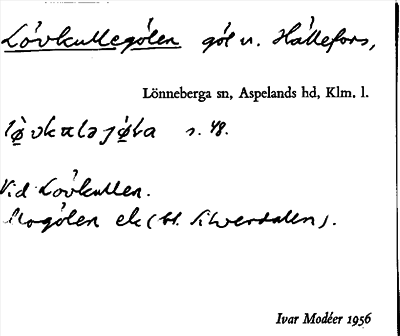 Lövkullegölen göl v. Hällefors,
Lönneberga sn, Aspelands hd, Klm. l.
s. 48.
Vid Lövkullen.
Mogölen ek (bl. Silverdalen).
Ivar Modéer 1956